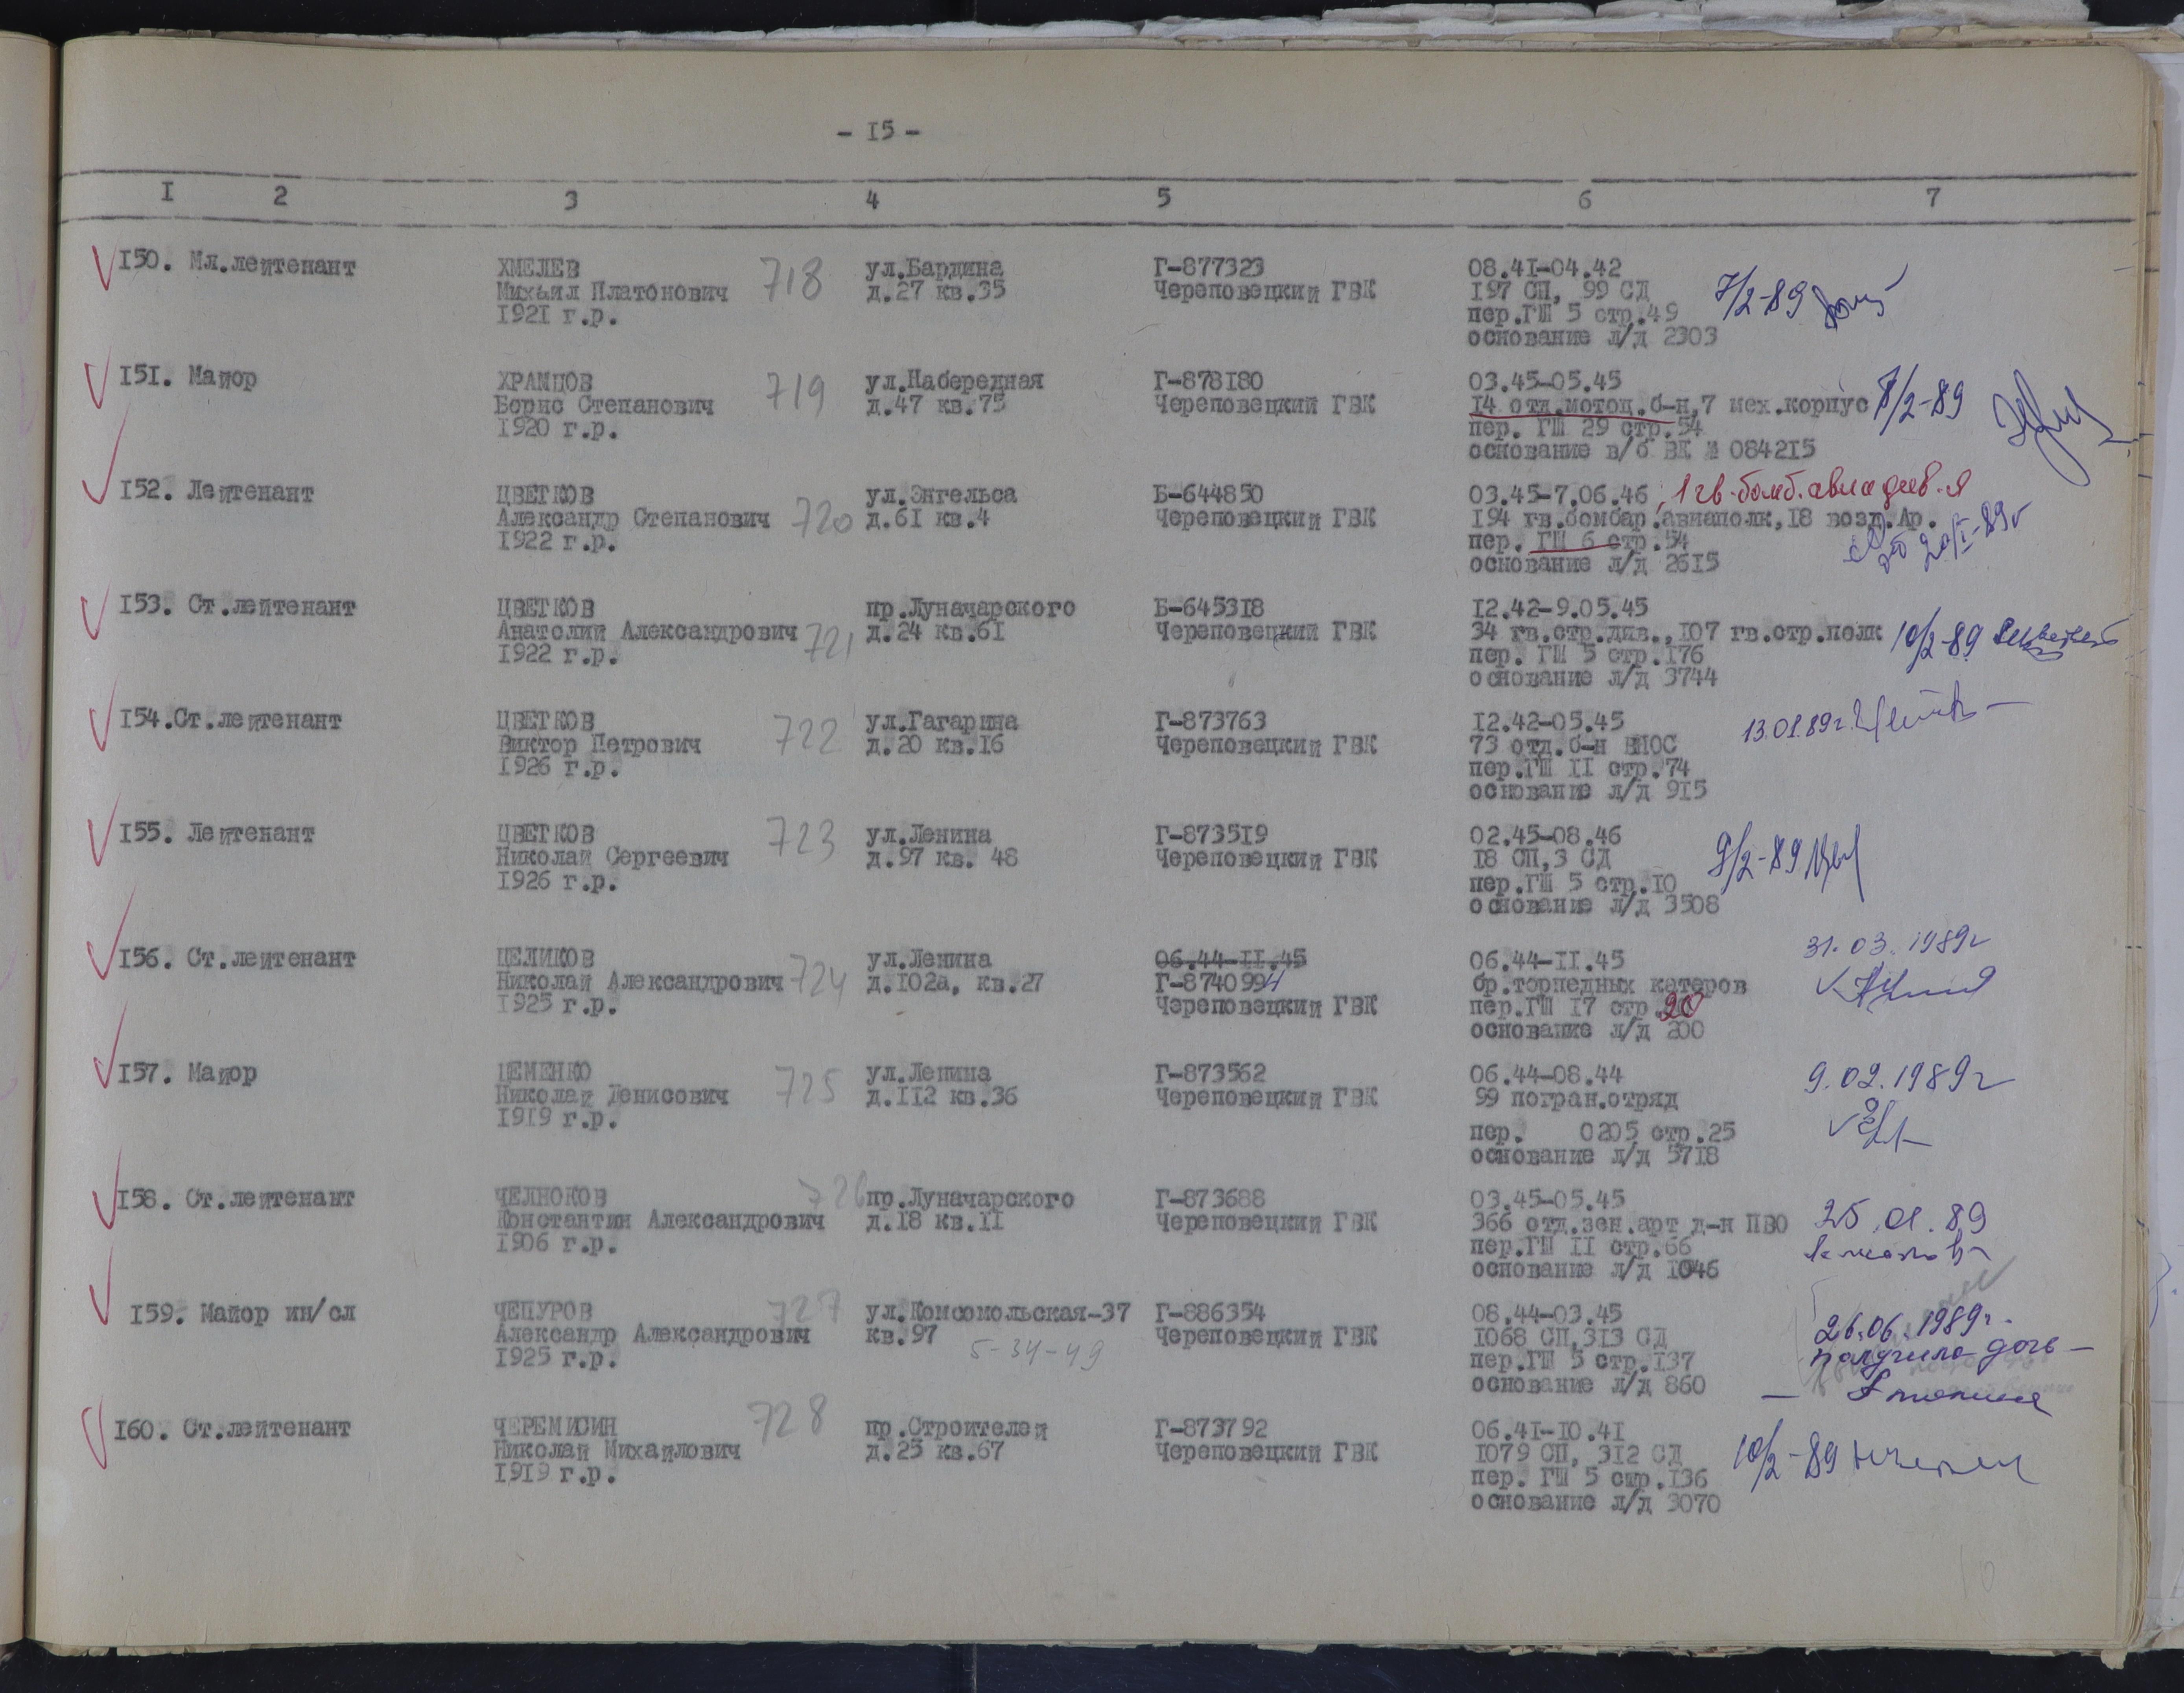 - I5 -
I 2 3 4 5 6 7
I50. Мл.лейтенант ХМЕЛЕВ 718 ул.Бардина Г-877323 08.4I-04.42
Михаил Платонович д.27 кв.35 Череповецкий ГВК I97 СП, 99 СД 7/2-89
I92I г.р. пер.ГШ 5 стр.49
основание л/д 2303
I5I. Майор ХРАМЦОВ 719 ул.Набередная Г-878I80 03.45-05.45
Борис Степанович д.47 кв.75 Череповецкий ГВК I4 отд.мотоц.б-н,7 мех.корпус 8/2-89
I920 г.р. пер. ГШ 29 стр.54
основание в/б ВК № 0842I5
I52. Лейтенант ЦВЕТКОВ ул.Энгельса Б-644850 03.45-7.06.46, 1 гв.бомб.авиадив-я
Александр Степанович 720 д.6I кв.4 Череповецкий ГВК I94 гв.бомбар.авиаполк,I8 возд.Ар.
I922 г.р. пер. ГШ 6 стр.54 20/I-89г
основание л/д 26I5
I53. Ст.лейтенант ЦВЕТКОВ пр.Луначарского Б-6453I8 I2.42-9.05.45
Анатолий Александрович 721 д.24 кв.6I Череповецкий ГВК 34 гв.стр.див.,I07 гв.стр.полк 10/2-89
I922 г.р. пер. ГШ 5 стр.I76
основание л/д 3744
I54.Ст.лейтенант ЦВЕТКОВ 722 ул.Гагарина Г-873763 I2.42-05.45 13.01.89г.
Виктор Петрович д.20 кв.I6 Череповецкий ГВК 73 отд.б-н ВНОС
I926 г.р. пер.ГШ II стр.74
основание л/д 9I5
I55. Лейтенант ЦВЕТКОВ 723 ул.Ленина Г-8735I9 02.45-08.46
Николай Сергеевич д.97 кв. 48 Череповецкий ГВК I8 СП,3 СД 9/2-89
I926 г.р. пер.ГШ 5 стр.I0
основание л/д 3508
I56. Ст.лейтенант ЦЕЛИКОВ ул.Ленина 06.44-II.45 06.44-II.45 31.03.1989г
Николай Александрович 724 д.I02а, кв.27 Г-8740994 бр.торпедных катеров
I925 г.р. Череповецкий ГВК пер.ГШ I7 стр.20
основание л/д 200
I57. Майор ЦЕМЕНКО 725 ул.Ленина Г-873562 06.44-08.44 9.02.1989г
Николай Денисович д.II2 кв.36 Череповецкий ГВК 99 погран.отряд
I9I9 г.р. пер. 0205 стр.25
основание л/д 57I8
I58. Ст.лейтенант ЧЕЛНОКОВ 726 пр.Луначарского Г-873688 03.45-05.45
Константин Александрович д.I8 кв.II Череповецкий ГВК 366 отд.зен.арт д-н ПВО 25.01.89
I906 г.р. пер.ГШ II стр.66
основание л/д I046
I59. Майор ин/сл ЧЕПУРОВ 727 ул.Комсомольская-37 Г-886354 08.44-03.45 26.06.1989г.
Александр Александрович кв.97 5-34-49 Череповецкий ГВК I068 СП,3I3 СД получила дочь -
I925 г.р. пер.ГШ 5 стр.I37
основание л/д 860
I60. Ст.лейтенант ЧЕРЕМИСИН 728 пр.Строителей Г-873792 06.4I-I0.4I
Николай Михайлович д.25 кв.67 Череповецкий ГВК I079 СП, 3I2 СД 10/2-89
I9I9 г.р. пер. ГШ 5 стр.I36
основание л/д 3070